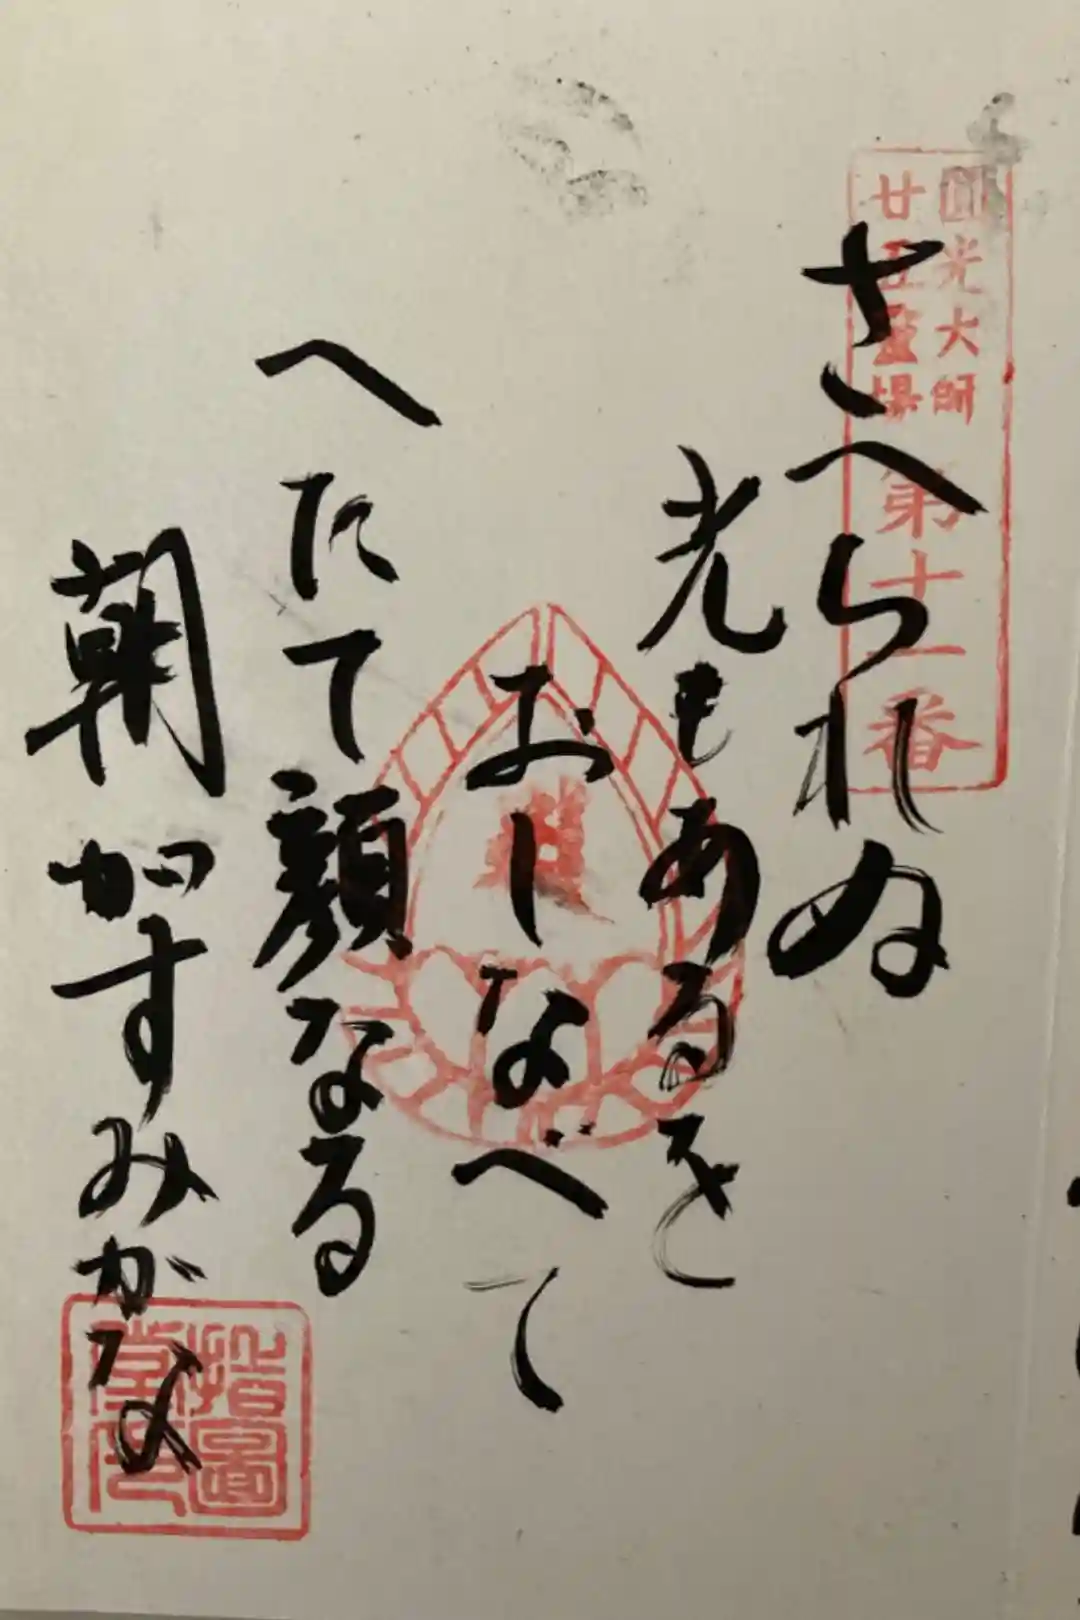 圓光大師
廿五霊場
第十一番
さへられぬ
光もあるを
おしなべて
へだて顔なる
朝がすみかな
指図
堂印